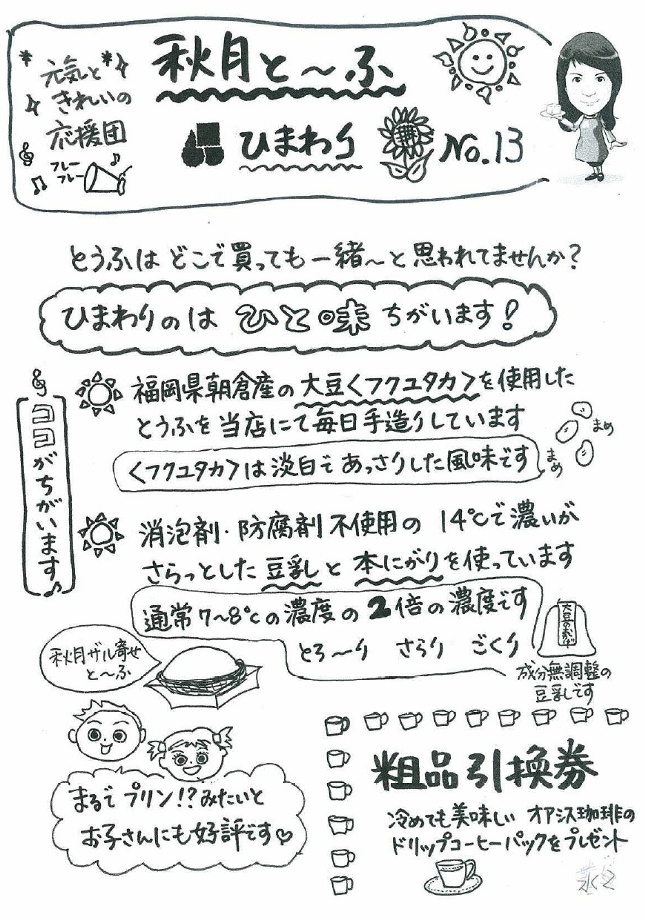 元気と
きれいの
応援団
フレー
フレー
秋月と～ふ
ひまわり No.13
とうふは どこで買っても 一緒～と 思われてませんか？
ひまわりのは ひと味 ちがいます！
ココがちがいます
福岡県朝倉産の 大豆〈フクユタカ〉を使用した
とうふを 当店にて 毎日手造りしています
〈フクユタカ〉は淡白で あっさりした風味です
まめ
まめ
消泡剤・防腐剤 不使用の 14℃で濃いが
さらっとした 豆乳と 本にがりを使っています
通常7～8℃の濃度の 2倍の濃度です
とろ～り さらり ごくり
成分無調整の
豆乳です
秋月ザル寄せ
と～ふ
まるで プリン!?みたいと
お子さんにも好評です♡
粗品引換券
冷めても美味しい オアシス珈琲の
ドリップコーヒーパックをプレゼント